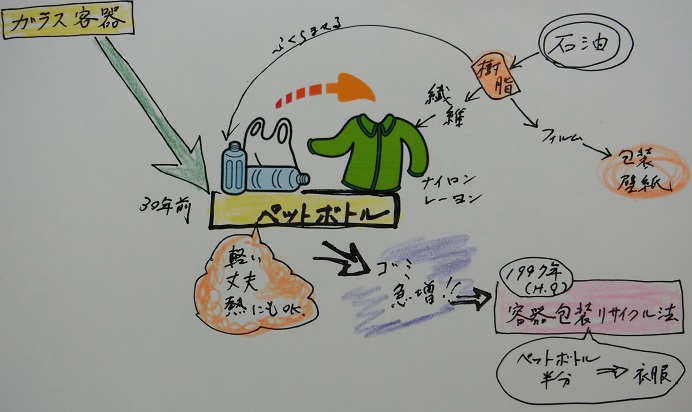 ガラス容器
石油
樹
脂
ふくらませる
繊
維
フィルム
包装
壁紙
ナイロン
レーヨン
30年前
ペットボトル
軽い
丈夫
熱にもOK
ゴミ
急増!!
1997年
(H.9)
容器包装リサイクル法
ペットボトル
半分 ⇒ 衣服